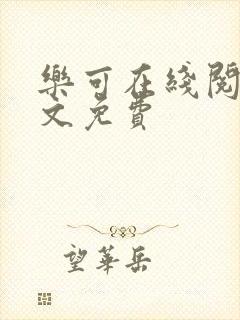 樂可在綫閱
文免費
望華岳